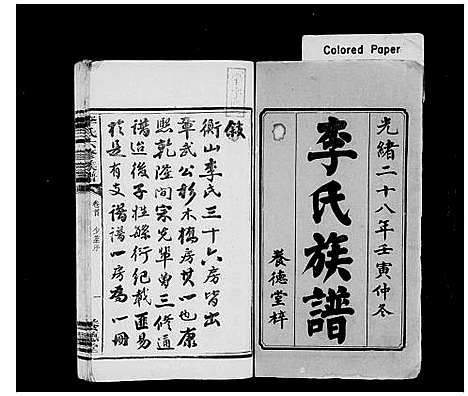 Colored Paper
光緒二十八年壬寅仲冬
李氏族譜
養德堂梓
敘
衡山李氏三十六房皆出
章武公杉木橋房其一也康
熙乾隆間宗先輩曾三修通
譜迨後子姓緜衍紀載匪易
於是有支譜譜一房為一冊
李氏六修族譜
卷首
一